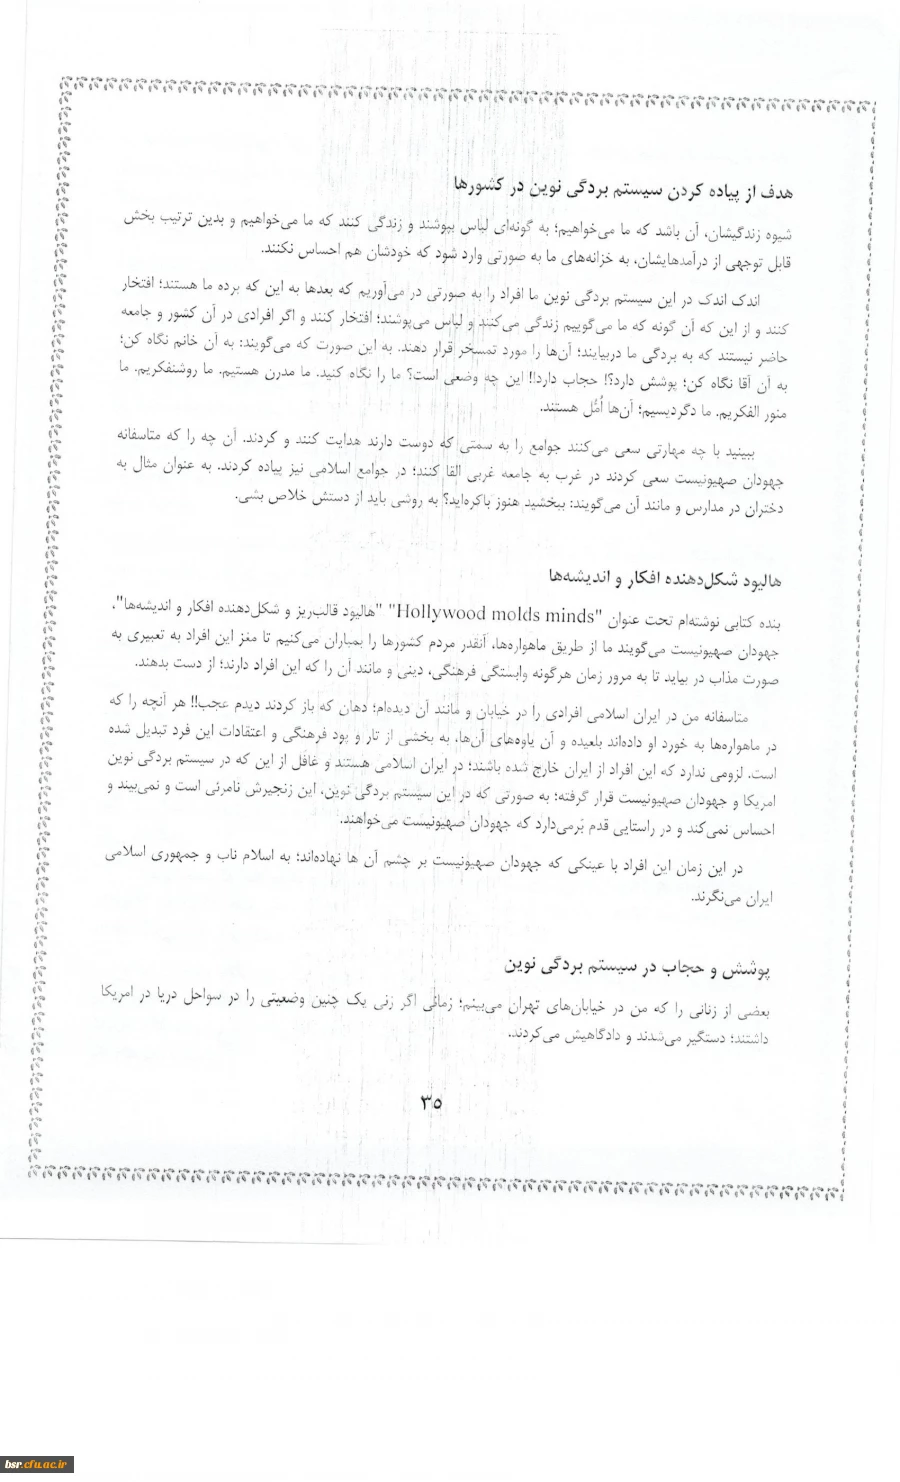 هدف از پیاده کردن سیستم بردگی نوین در کشورها
شیوه زندگیشان، آن باشد که ما می‌خواهیم؛ به گونه‌ای لباس بپوشند و زندگی کنند که ما می‌خواهیم و بدین ترتیب بخش
قابل توجهی از درآمدهایشان، به خزانه‌های ما به صورتی وارد شود که خودشان هم احساس نکنند.
اندک اندک در این سیستم بردگی نوین ما افراد را به صورتی در می‌آوریم که بعدها به این که برده ما هستند؛ افتخار
کنند و از این که آن گونه که ما می‌گوییم زندگی می‌کنند و لباس می‌پوشند؛ افتخار کنند و اگر افرادی در آن کشور و جامعه
حاضر نیستند که به بردگی ما دربیایند؛ آن‌ها را مورد تمسخر قرار دهند. به این صورت که می‌گویند: به آن خانم نگاه کن؛
به آن آقا نگاه کن؛ پوشش دارد؟! حجاب دارد!! این چه وضعی است؟ ما را نگاه کنید. ما مدرن هستیم. ما روشنفکریم. ما
منور الفکریم. ما دگردیسیم؛ آن‌ها اُمُّل هستند.
ببینید با چه مهارتی سعی می‌کنند جوامع را به سمتی که دوست دارند هدایت کنند و کردند. آن چه را که متاسفانه
جهودان صهیونیست سعی کردند در غرب به جامعه غربی القا کنند؛ در جوامع اسلامی نیز پیاده کردند. به عنوان مثال به
دختران در مدارس و مانند آن می‌گویند: ببخشید هنوز باکره‌اید؟ به روشی باید از دستش خلاص بشی.
هالیود شکل‌دهنده افکار و اندیشه‌ها
بنده کتابی نوشته‌ام تحت عنوان "Hollywood molds minds" "هالیود قالب‌ریز و شکل‌دهنده افکار و اندیشه‌ها".
جهودان صهیونیست می‌گویند ما از طریق ماهواره‌ها، آنقدر مردم کشورها را بمباران می‌کنیم تا مغز این افراد به تعبیری به
صورت مذاب در بیاید تا به مرور زمان هرگونه وابستگی فرهنگی، دینی و مانند آن را که این افراد دارند؛ از دست بدهند.
متاسفانه من در ایران اسلامی افرادی را در خیابان و مانند آن دیده‌ام؛ دهان که باز کردند دیدم عجب!! هر آنچه را که
در ماهواره‌ها به خورد او داده‌اند بلعیده و آن یاوه‌های آن‌ها، به بخشی از تار و پود فرهنگی و اعتقادات این فرد تبدیل شده
است. لزومی ندارد که این افراد از ایران خارج شده باشند؛ در ایران اسلامی هستند و غافل از این که در سیستم بردگی نوین
امریکا و جهودان صهیونیست قرار گرفته؛ به صورتی که در این سیستم بردگی نوین، این زنجیرش نامرئی است و نمی‌بیند و
احساس نمی‌کند و در راستایی قدم بَرمی‌دارد که جهودان صهیونیست می‌خواهند.
در این زمان این افراد با عینکی که جهودان صهیونیست بر چشم آن ها نهاده‌اند؛ به اسلام ناب و جمهوری اسلامی
ایران می‌نگرند.
پوشش و حجاب در سیستم بردگی نوین
بعضی از زنانی را که من در خیابان‌های تهران می‌بینم؛ زمانی اگر زنی یک چنین وضعیتی را در سواحل دریا در امریکا
داشتند؛ دستگیر می‌شدند و دادگاهیش می‌کردند.
۳۵
bsr.cfu.ac.ir